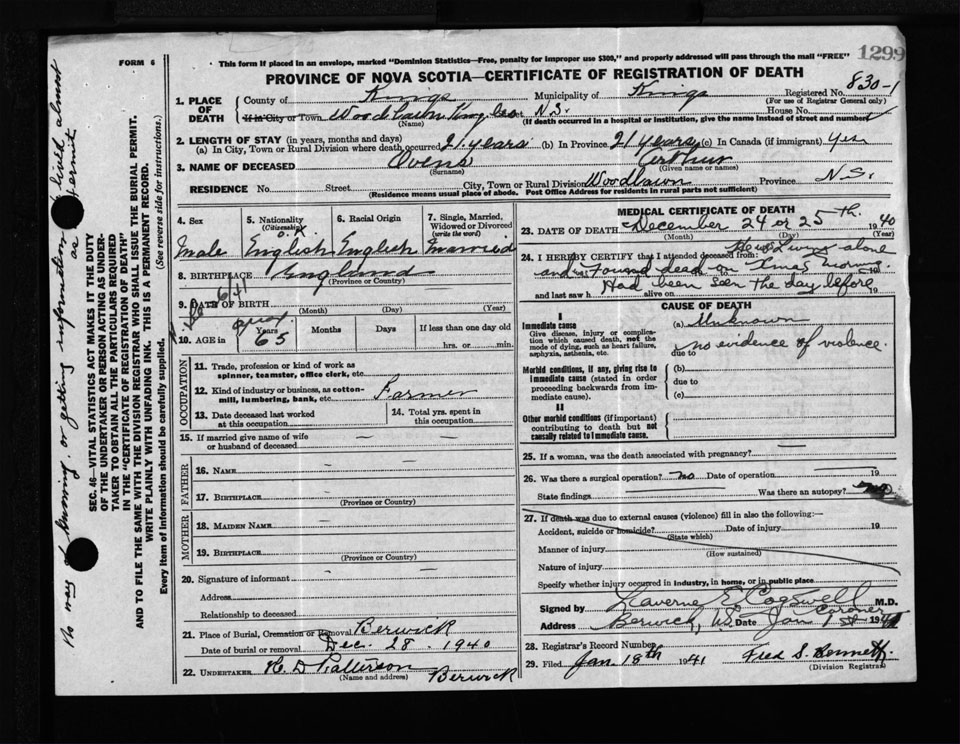 1299
FORM 6
This form if placed in an envelope, marked "Dominion Statistics—Free, penalty for improper use $300," and properly addressed will pass through the mail "FREE"
PROVINCE OF NOVA SCOTIA—CERTIFICATE OF REGISTRATION OF DEATH
Registered No. 830-1
(For use of Registrar General only)
1. PLACE OF DEATH
County of Kings Municipality of Kings
If in City or Town N.S. House No.
(Name) (If death occurred in a hospital or institution, give the name instead of street and number)
2. LENGTH OF STAY (in years, months and days)
(a) In City, Town or Rural Division where death occurred 21 years (b) In Province 21 years (c) In Canada (if immigrant) yes
3. NAME OF DECEASED Ovens Arthur
(Surname) (Given name or names)
RESIDENCE No. Street City, Town or Rural Division Woodlawn Province N.S.
(Residence means usual place of abode. Post Office Address for residents in rural parts not sufficient)
4. Sex
Male
5. Nationality (Citizenship)
O.K
English
6. Racial Origin
English
7. Single, Married, Widowed or Divorced (write the word)
Married
8. BIRTHPLACE England
(Province or Country)
9. DATE OF BIRTH
(Month) (Day) (Year)
10. AGE in
Years Months Days If less than one day old
65 hrs. or min.
OCCUPATION
11. Trade, profession or kind of work as spinner, teamster, office clerk, etc.
12. Kind of industry or business, as cotton-mill, lumbering, bank, etc. Farmer
13. Date deceased last worked at this occupation
14. Total yrs. spent in this occupation
15. If married give name of wife or husband of deceased — —
FATHER
16. NAME —
17. BIRTHPLACE —
(Province or Country)
MOTHER
18. MAIDEN NAME —
19. BIRTHPLACE —
(Province or Country)
20. Signature of informant — —
Address
Relationship to deceased
21. Place of Burial, Cremation or Removal Berwick
Date of burial or removal Dec. 28. 1940
22. UNDERTAKER H. D Patterson
(Name and address) Berwick
MEDICAL CERTIFICATE OF DEATH
23. DATE OF DEATH December 24 or 25th 1940
(Month) (Day) (Year)
24. I HEREBY CERTIFY that I attended deceased from:
living alone
and was found dead on Xmas morning.
Had been seen the day before
and last saw h alive on 19
CAUSE OF DEATH
I
Immediate cause
Give disease, injury or complication which caused death, not the mode of dying, such as heart failure, asphyxia, asthenia, etc.
(a) Unknown
due to no evidence of violence.
Morbid conditions, if any, giving rise to immediate cause (stated in order proceeding backwards from immediate cause).
(b)
due to
(c)
II
Other morbid conditions (if important) contributing to death but not causally related to immediate cause.
25. If a woman, was the death associated with pregnancy?
26. Was there a surgical operation? no Date of operation 19
State findings Was there an autopsy? no
27. If death was due to external causes (violence) fill in also the following:—
Accident, suicide or homicide? Date of injury 19
(State which)
Manner of injury
(How sustained)
Nature of injury
Specify whether injury occurred in industry, in home, or in public place
Signed by Laverne E Cogswell M.D.
Coroner
Address Berwick, N.S. Date Jan 1st 1941
28. Registrar's Record Number
29. Filed Jan 18th 1941 Fred S. Bennett
(Division Registrar)
SEC. 46—VITAL STATISTICS ACT MAKES IT THE DUTY OF THE UNDERTAKER OR PERSON ACTING AS UNDERTAKER TO OBTAIN ALL THE PARTICULARS REQUIRED IN THE "CERTIFICATE OF REGISTRATION OF DEATH" AND TO FILE THE SAME WITH THE DIVISION REGISTRAR WHO SHALL ISSUE THE BURIAL PERMIT.
WRITE PLAINLY WITH UNFADING INK. THIS IS A PERMANENT RECORD.
Every item of information should be carefully supplied. (See reverse side for instructions.)
No way of or getting information as permit